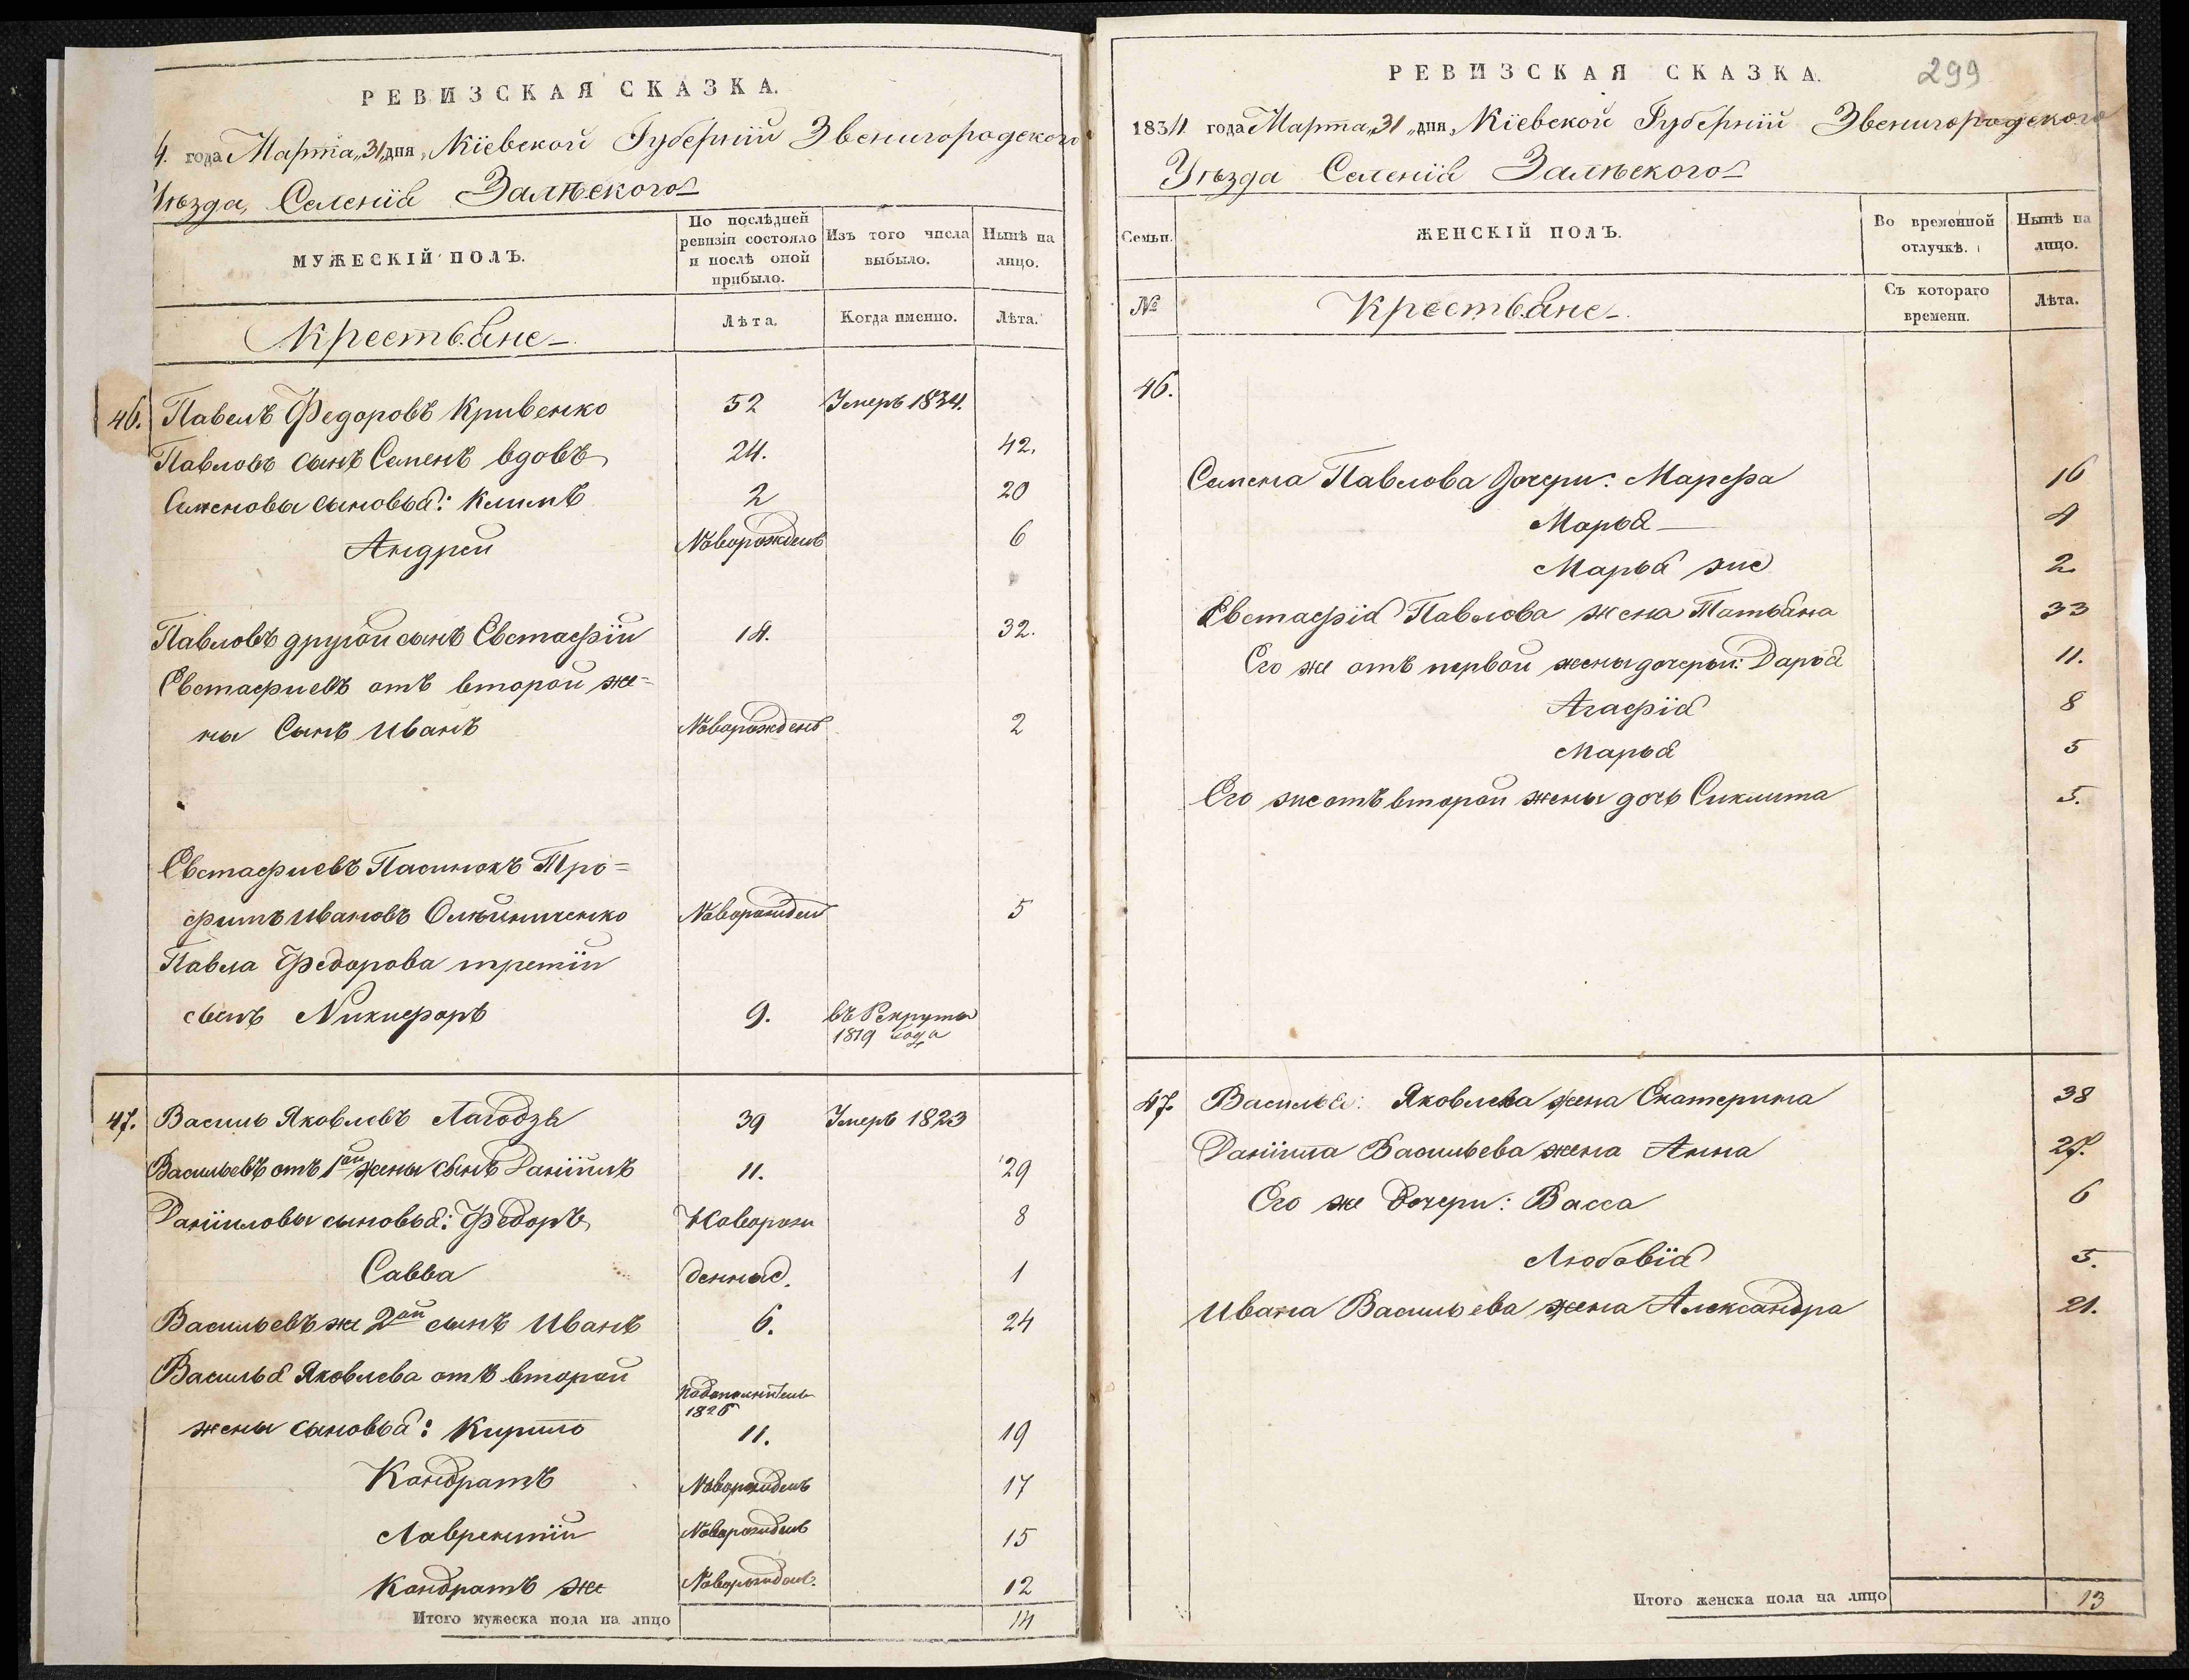 РЕВИЗСКАЯ СКАЗКА.
4. года Марта „31„ дня, Кіевской Губерніи Звенигородского
Уѣзда, Селенія Залѣского
МУЖЕСКІЙ ПОЛЪ.
По послѣдней ревизіи состояло и послѣ оной прибыло.
Изъ того числа выбыло.
Нынѣ на лицо.
Крестьяне
Лѣта.
Когда именно.
Лѣта.
46. Павелъ Федоровъ Кривенко 52 Умеръ 1834.
Павловъ сынъ Семенъ вдовъ 24. 42.
Семеновы сыновья: Климъ 2 20
Андрей Новорожденъ 6
Павловъ другой сынъ Евстафій 14. 32.
Евстафиевъ отъ второй же=
ны Сынъ Иванъ Новорожденъ 2
Евстафиевъ Пасинокъ Тро=
фимъ Ивановъ Олѣйниченко Новорожден 5
Павла Федорова третій
сынъ Никифоръ 9. въ Рекруты
1819 года
47. Василь Яковлевъ Лагодзя 39 Умеръ 1823
Васильевъ отъ 1ой жены сынъ Даніилъ 11. 29
Даніиловы сыновья: Федоръ Новорож 8
Савва денные. 1
Васильевъ же 2ой сынъ Иванъ 6. 24
Василья Яковлева отъ второй
1826
жены сыновья: Кирило 11. 19
Кондратъ Новорожденъ 17
Лаврентій Новорожденъ 15
Кондратъ же Новорожден. 12
Итого мужеска пола на лицо 14
РЕВИЗСКАЯ СКАЗКА.
299
1834 года Марта „31 „дня„ Кіевской Губерніи Звенигородского
Уѣзда Селенія Залѣского
Семьи.
ЖЕНСКІЙ ПОЛЪ.
Во временной отлучкѣ.
Нынѣ на лицо.
№
Крестьяне
Съ котораго времени.
Лѣта.
46.
Семена Павлова Дочери: Марфа 16
Марья 4
Марья же 2
Евстафія Павлова жена Татьяна 33
Его же отъ первой жены дочери: Дарья 11.
Агафія 8
Марья 5
Его же отъ второй жены дочь Сиклита 5.
47. Василья: Яковлева жена Екатерина 38
Даніила Васильева жена Анна 27.
Его же Дочери: Васса 6
Любовія 5.
Ивана Васильева жена Александра 21.
Итого женска пола на лицо 13